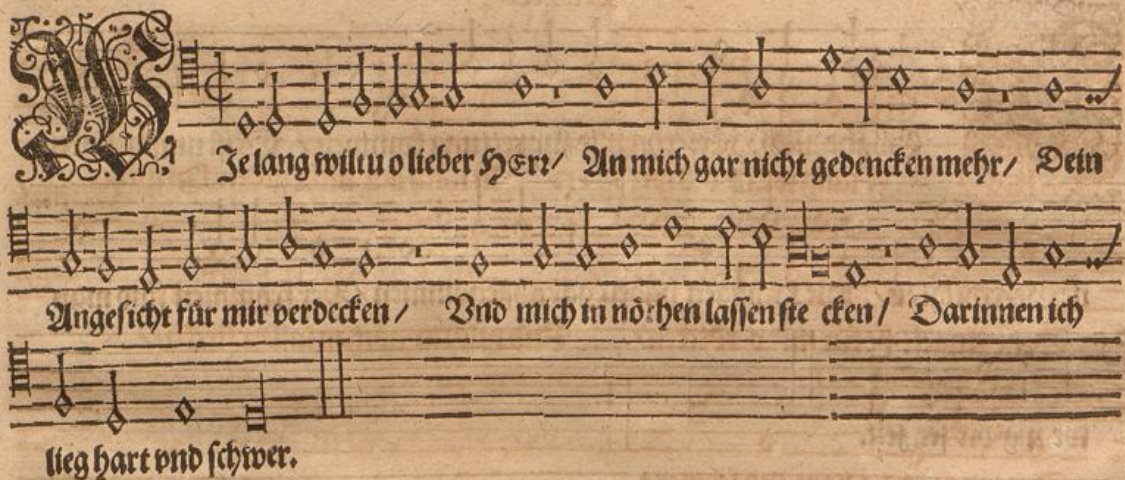 WJe lang wiltu o lieber HErr/ An mich gar nicht gedencken mehr/ Dein
Angesicht für mir verdecken/ Vnd mich in nöthen lassen ste cken/ Darinnen ich
lieg hart vnd schwer.